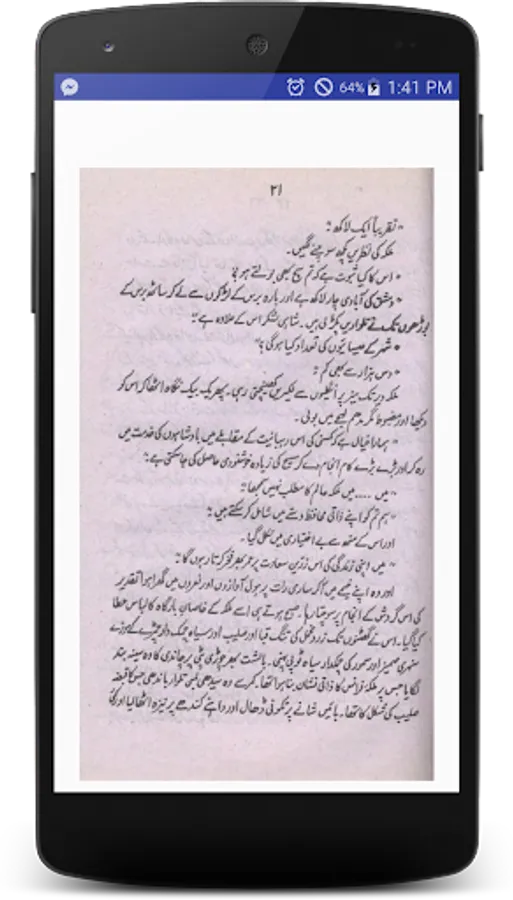 64% 1:41 PM
۲۱
" تقریباً ایک لاکھ "
ملکہ کی نظریں کچھ سوچنے لگیں۔
" اس کا کیا ثبوت ہے کہ تم سچ کبھی بولتے ہو؟
" دمشق کی آبادی چار لاکھ ہے اور بارہ برس کے لڑکوں سے لے کر ساٹھ برس کے
بوڑھوں تک نے تلواریں پکڑ لی ہیں۔ شاہی لشکر اس کے علاوہ ہے "
" شہر کے عیسائیوں کی تعداد کیا ہوگی؟ "
" دس ہزار سے کبھی کم "
ملکہ دیر تک میز پر انگلیوں سے لکیریں کھینچتی رہی۔ پھر یک بیک نگاہ اٹھا کر اس کو
دیکھا اور مضبوط مگر مدھم لہجے میں بولی۔
" ہمارا خیال ہے کہ کمسنی کی اس رہبانیت کے مقابلے میں بادشاہوں کی خدمت میں
رہ کر اور بڑے بڑے کام انجام دے کر مسیح کی زیادہ خوشنودی حاصل کی جا سکتی ہے "
" میں ..... میں ملکہ عالم کا مطلب نہیں سمجھا "
" ہم تم کو اپنے ذاتی محافظ دستے میں شامل کر سکتے ہیں "
اور اس کے منھ سے بے اختیاری میں نکل گیا۔
" میں اپنی زندگی کی اس زریں سعادت پر عمر بھر فخر کرتا رہوں گا "
اور وہ اپنے خیمے میں آ کر ساری رات پر ہول آوازوں اور نعروں میں گھرا ہوا تقدیر
کی اس گردش کے انجام پر سوچتا رہا۔ صبح ہوتے ہی اسے ملکہ کے خاصان بارگاہ کا لباس عطا
کیا گیا۔ اس نے گھٹنوں تک زرد مخمل کی تنگ قبا اور صلیب اور سیاہ چمکدار چمڑے کے موزے
سنہری مہمیز اور سمور کی چمکدار سیاہ ٹوپی پہنی۔ بالشت بھر چوڑی پٹی پر چاندی کا وہ سینہ بند
لگایا جس پر ملکہ فرانس کا ذاتی نشان بنا ہوا تھا۔ کمر سے وہ سیدھی لمبی تلوار باندھی جس کا قبضہ
صلیب کی شکل کا تھا۔ بائیں شانے پر تکونی ڈھال اور داہنے کندھے پر نیزہ اٹھا لیا اور